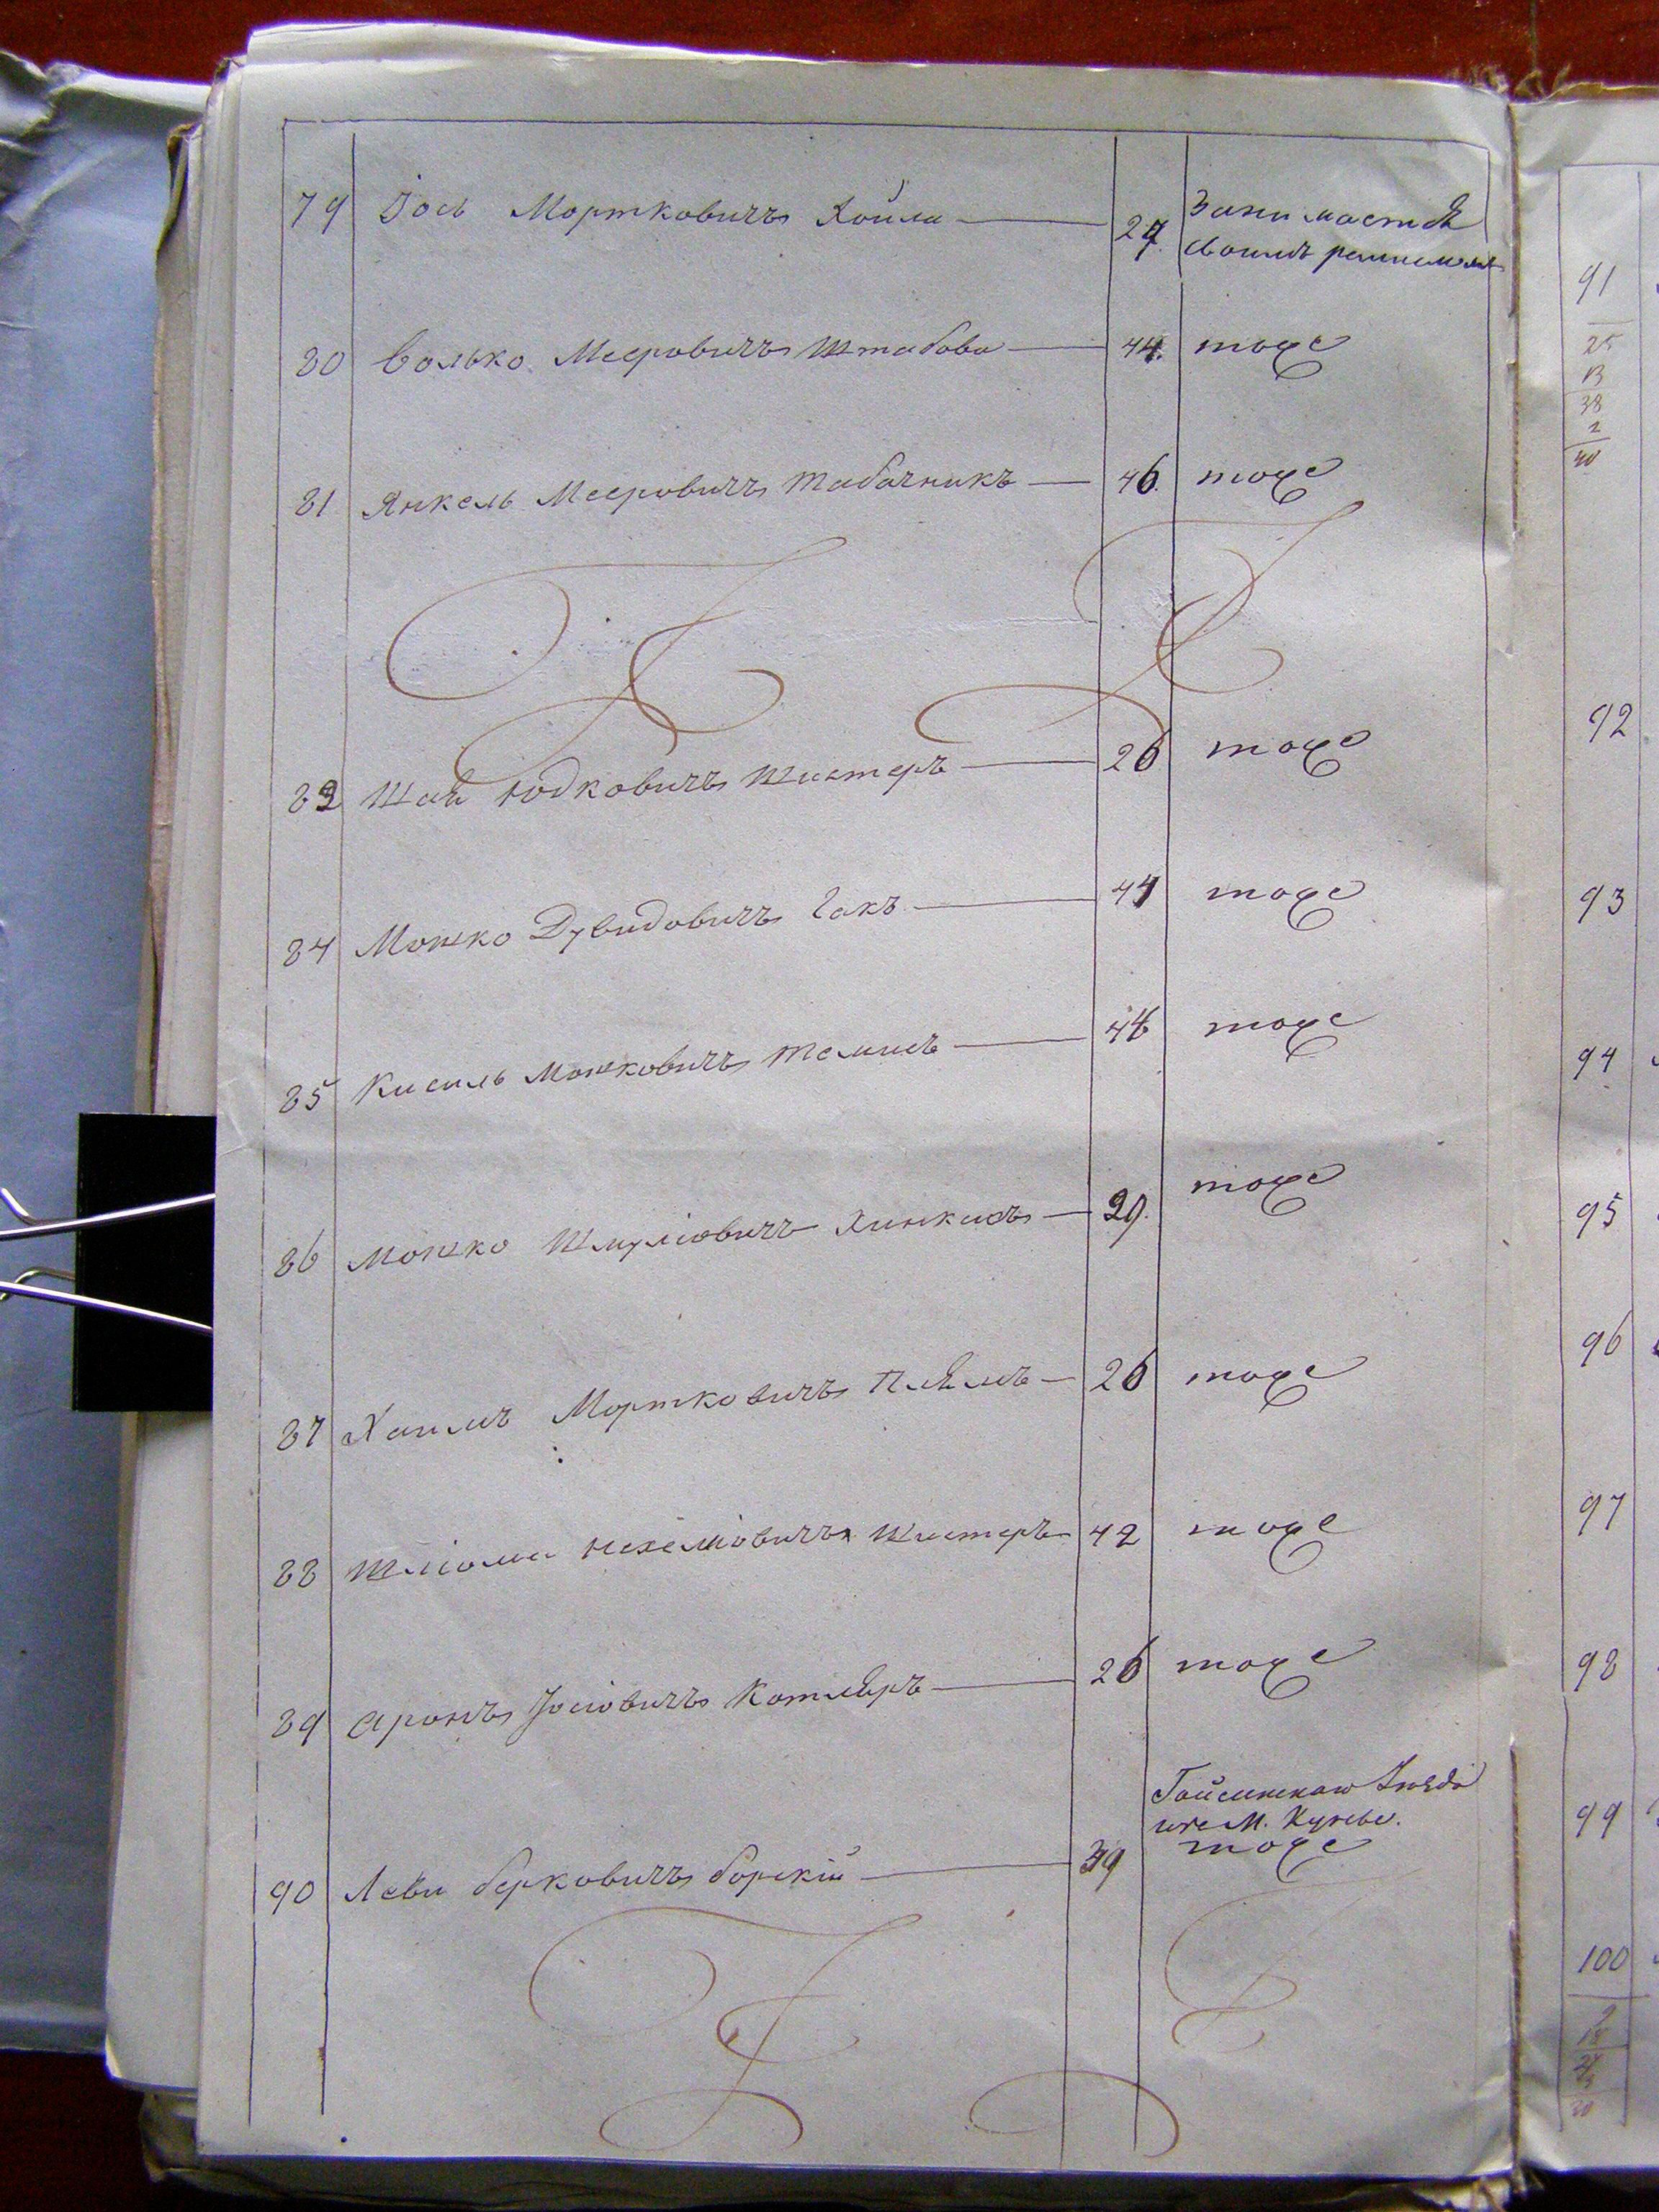 79 Іось Мортковичъ Хойли 27. Занимаетсѣ
своимъ ремиемомъ
80 Волько Мееровичъ Штабова 44. тоже
81 Янкель Мееровичъ Табачникъ 46. тоже
83 Шая Юдковичъ Шистеръ 26 тоже
84 Мошко Дувидовичъ Гакъ 44 тоже
85 Кисиль Мошковичъ 44 тоже
86 Мошко Шмулiовичъ 29. тоже
87 Хаимъ Мортковичъ 26 тоже
88 Шліома Нехеміовичъ Шистеръ 42 тоже
89 Аронъ Іосiовичъ Котлѣръ 26 тоже
Гайсинскаго
М.
90 Леви Берковичъ Борскій 39 тоже
91
25
13
38
2
40
92
93
94
95
96
97
98
99
100